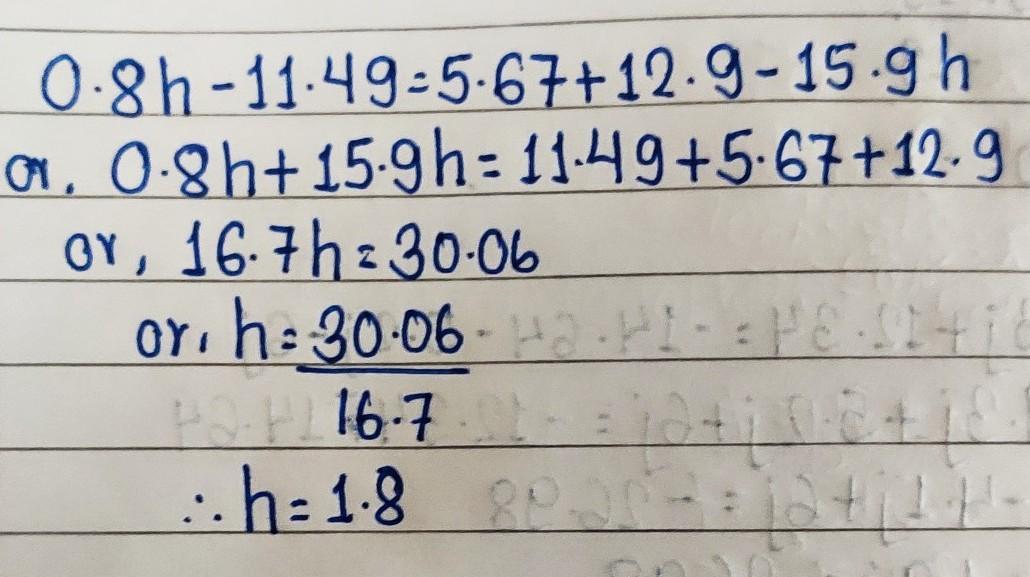 0.8h-11.49=5.67+12.9-15.9h
or, 0.8h+15.9h=11.49+5.67+12.9
or, 16.7h=30.06
or, h=30.06
16.7
∴h=1.8